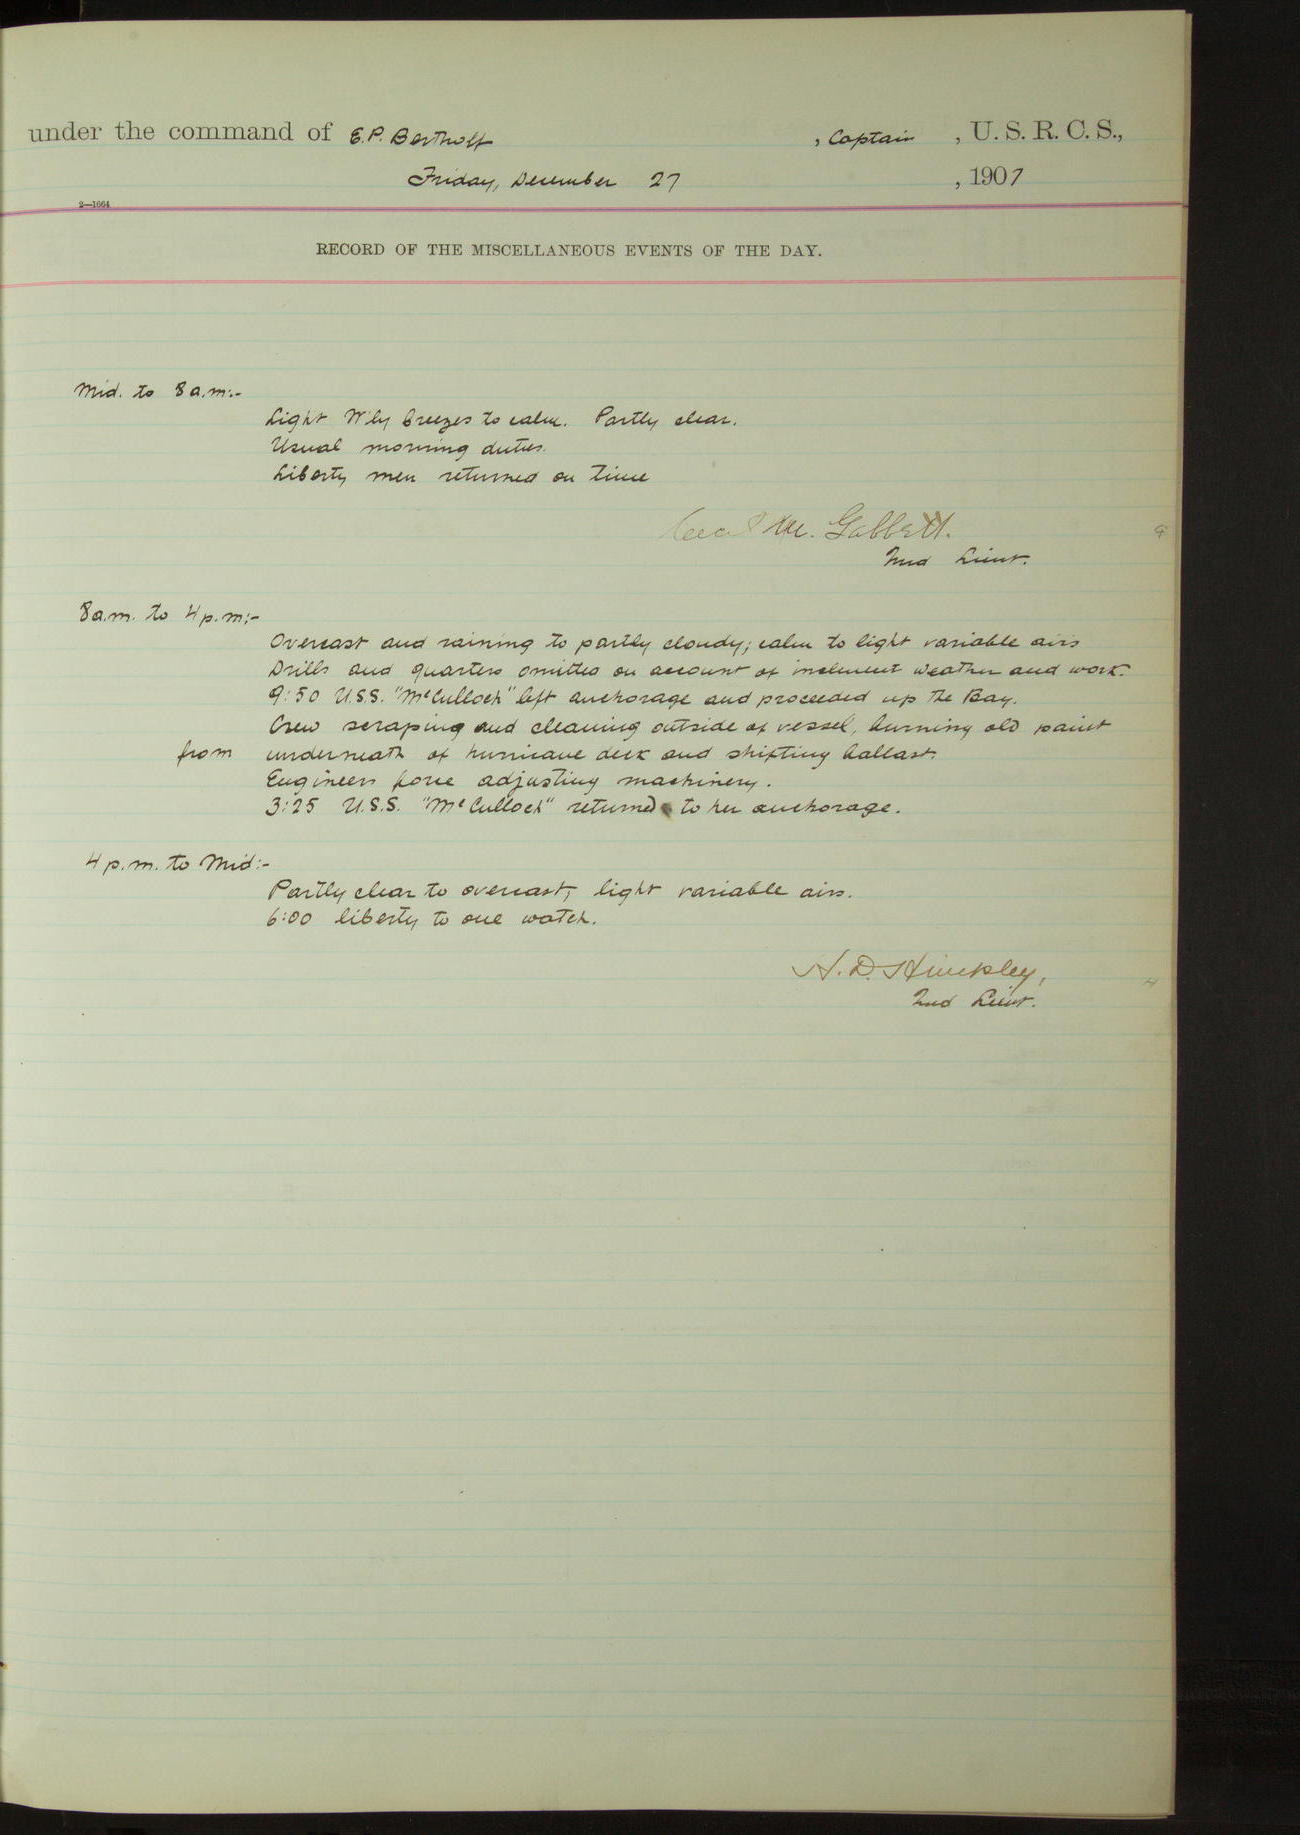 under the command of E.P. Bertholf , Captain , U. S. R. C. S.,
Friday, December 27 , 1907
2—1664
RECORD OF THE MISCELLANEOUS EVENTS OF THE DAY.
Mid. to 8 a.m:-
Light W'ly breezes to calm. Partly clear.
Usual morning duties.
Liberty men returned on time
Cecil M. Gabbett.
2nd Lieut.
8 a.m. to 4 p.m:-
Overcast and raining to partly cloudy; calm to light variable airs
Drills and quarters omitted on account of inclement weather and work.
9:50 U.S.S. "McCulloch" left anchorage and proceeded up the Bay.
Crew scraping and cleaning outside of vessel, burning old paint
from underneath of hurricane deck and shifting ballast.
Engineers force adjusting machinery.
3:25 U.S.S. "McCulloch" returned to her anchorage.
4 p.m. to Mid:-
Partly clear to overcast, light variable airs.
6:00 liberty to one watch.
H. D. Hinckley,
2nd Lieut.